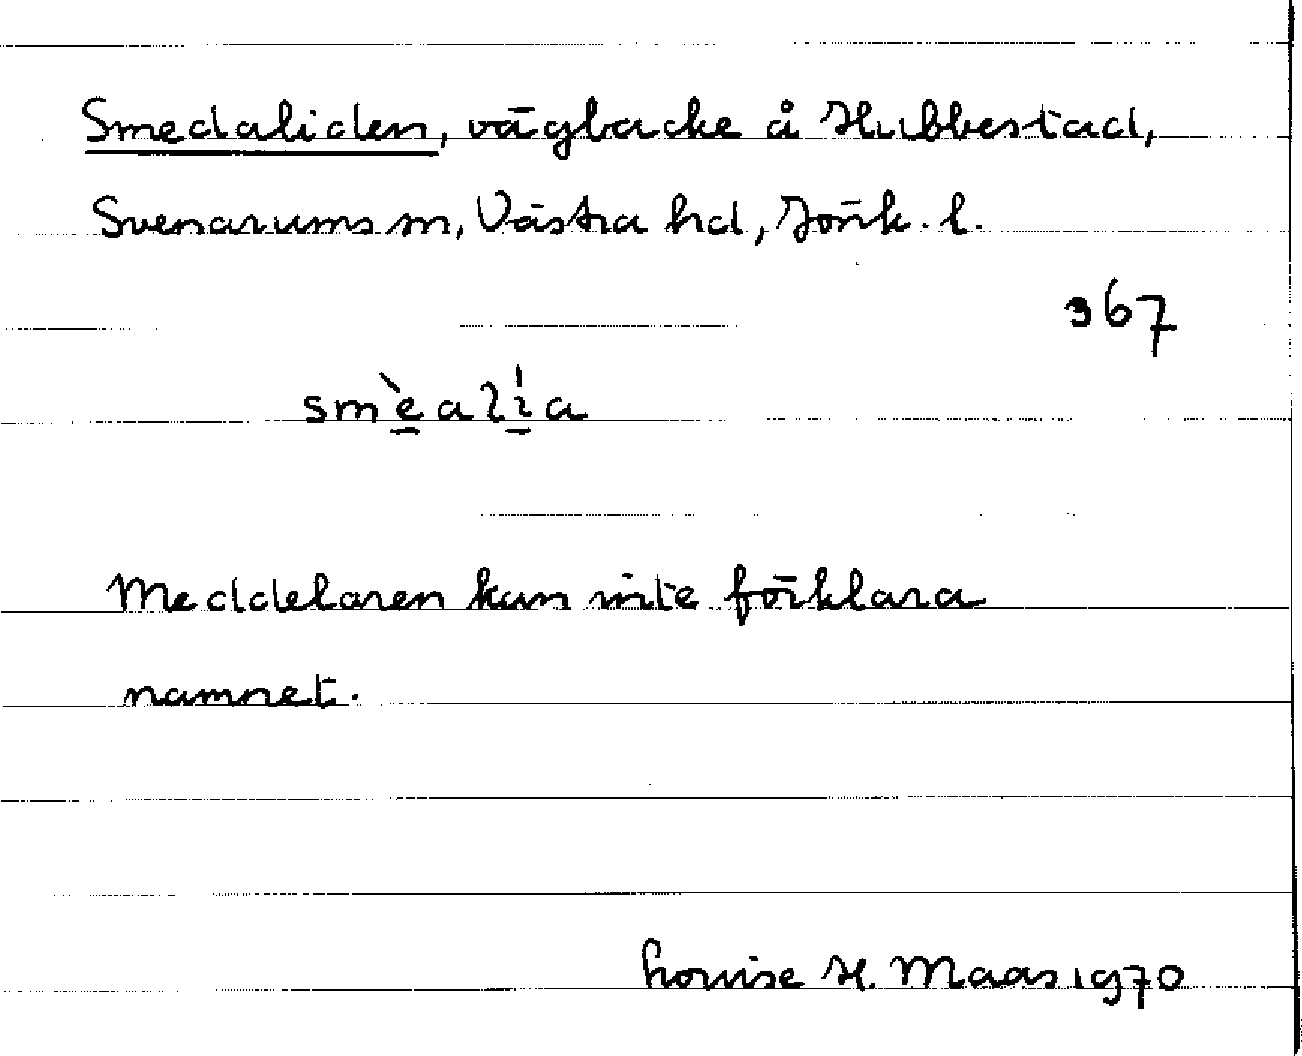 Smedaliden, vägbacke å Hubbestad,
Svenarums sn, Västra hd, Jönk. l.
367
smèalia
Meddelaren kan inte förklara
namnet.
Louise H. Maas 1970